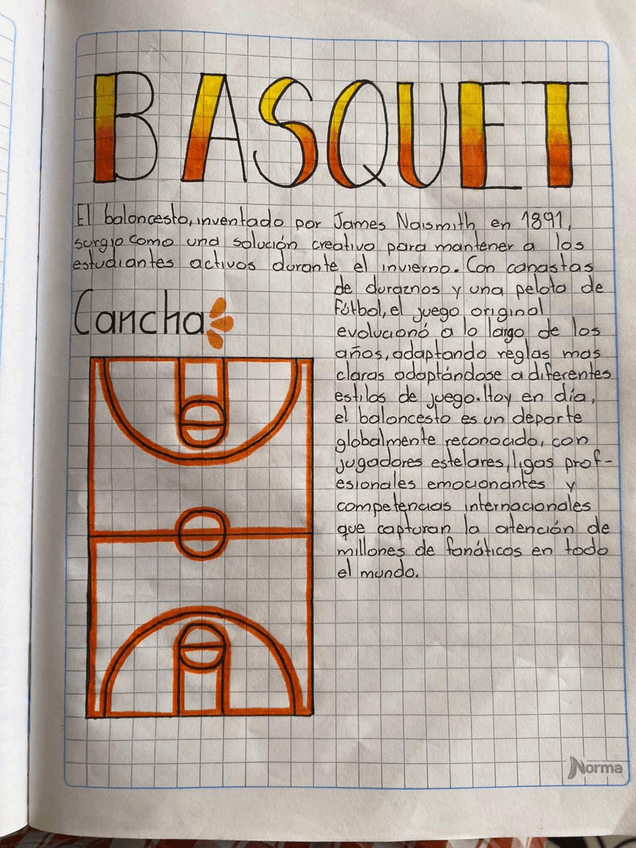 BASQUET
El baloncesto, inventado por James Naismith en 1891,
surgio como una solución creativa para mantener a los
estudiantes activos durante el invierno. Con canastas
de duraznos y una pelota de
fútbol, el juego original
evolucionó a lo largo de los
años, adaptando reglas mas
claras adaptándose a diferentes
estilos de juego. Hoy en día,
el baloncesto es un deporte
globalmente reconocido, con
jugadores estelares, ligas prof-
esionales emocionantes y
competencias internacionales
que capturan la atención de
millones de fanáticos en todo
el mundo.
Cancha
Norma